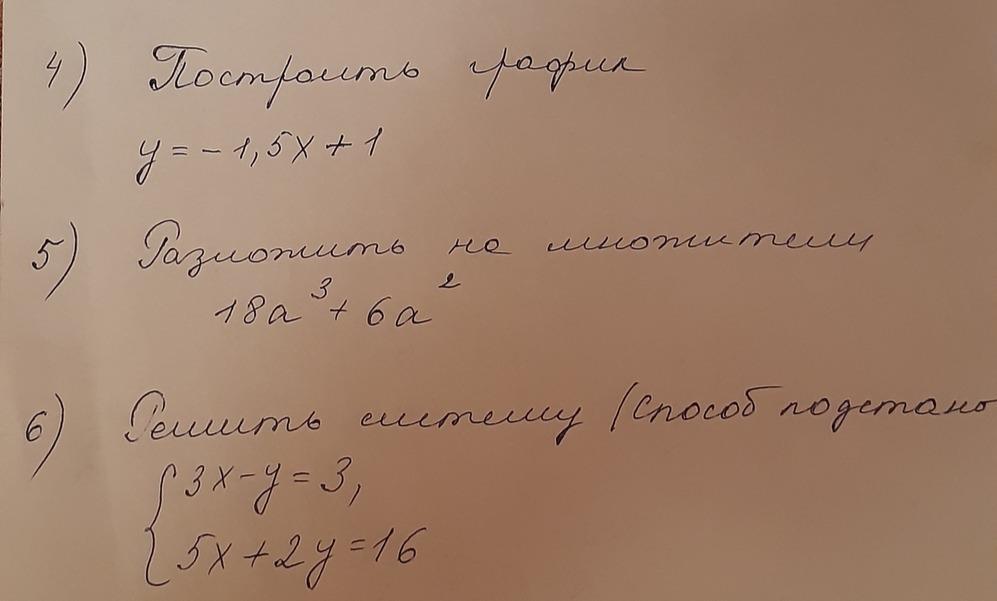 4) Построить график
y = -1,5x + 1
5) Разложить на множители
18a³ + 6a²
6) Решить систему (способ подстано
{ 3x - y = 3,
5x + 2y = 16